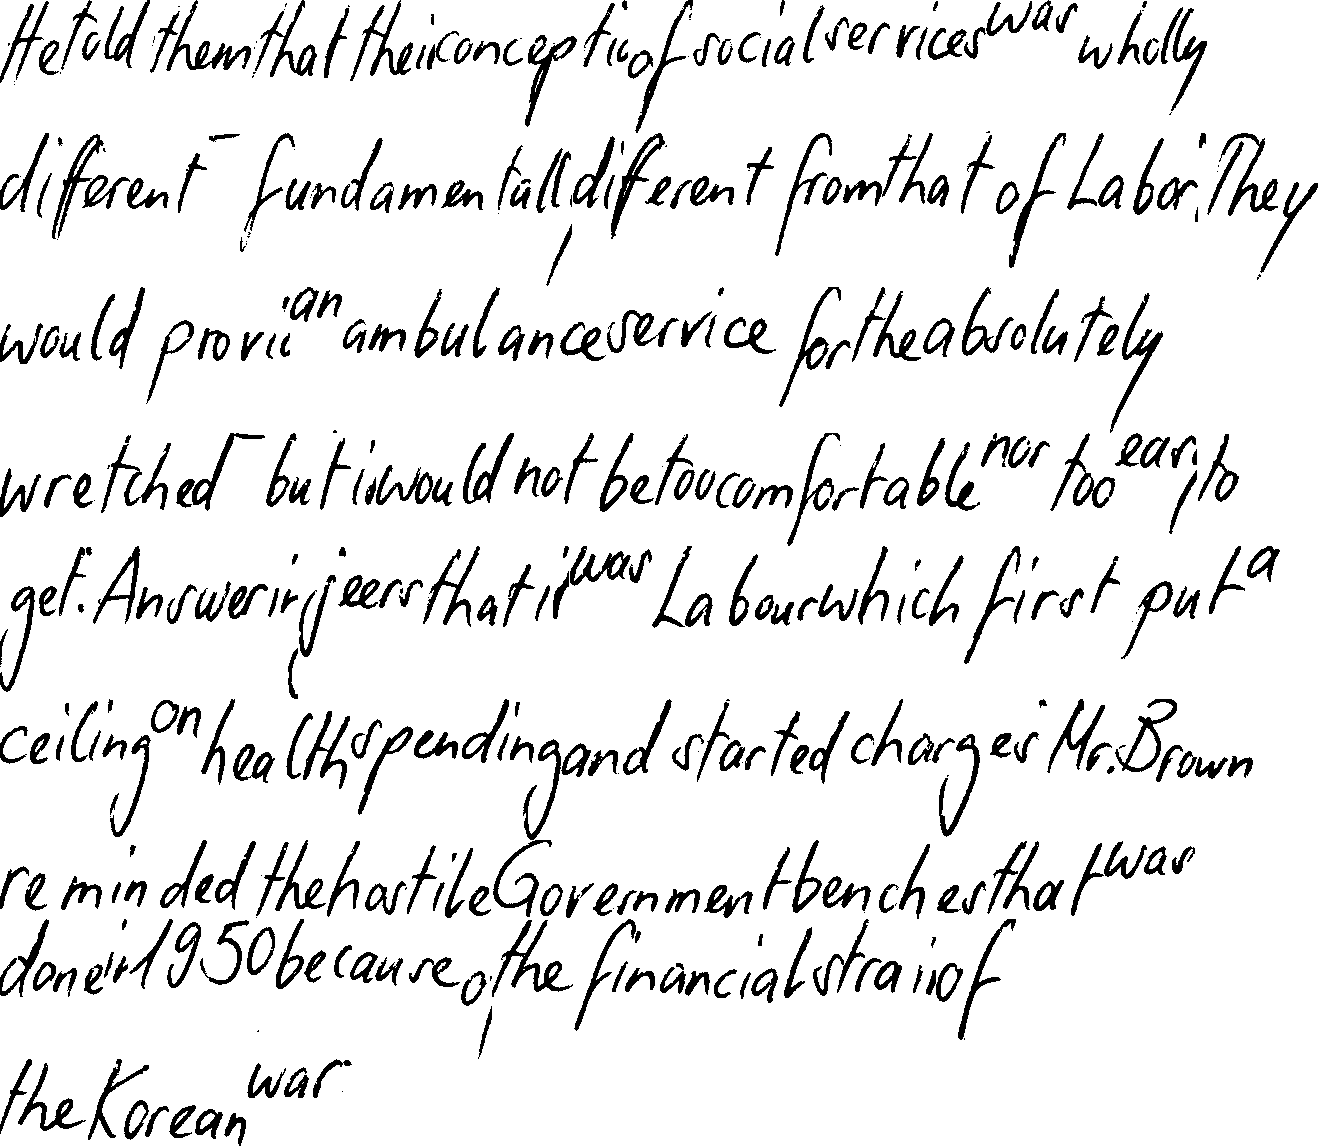 He told them that their conception of social services was wholly
different - fundamentally different from that of Labor. They
would provide an ambulance service for the absolutely
wretched - but it would not be too comfortable nor too easy to
get. Answering jeers that it was Labour which first put a
ceiling on health spending and started charges Mr. Brown
reminded the hostile Government benches that was
done in 1950 because of the financial strain of
the Korean war.